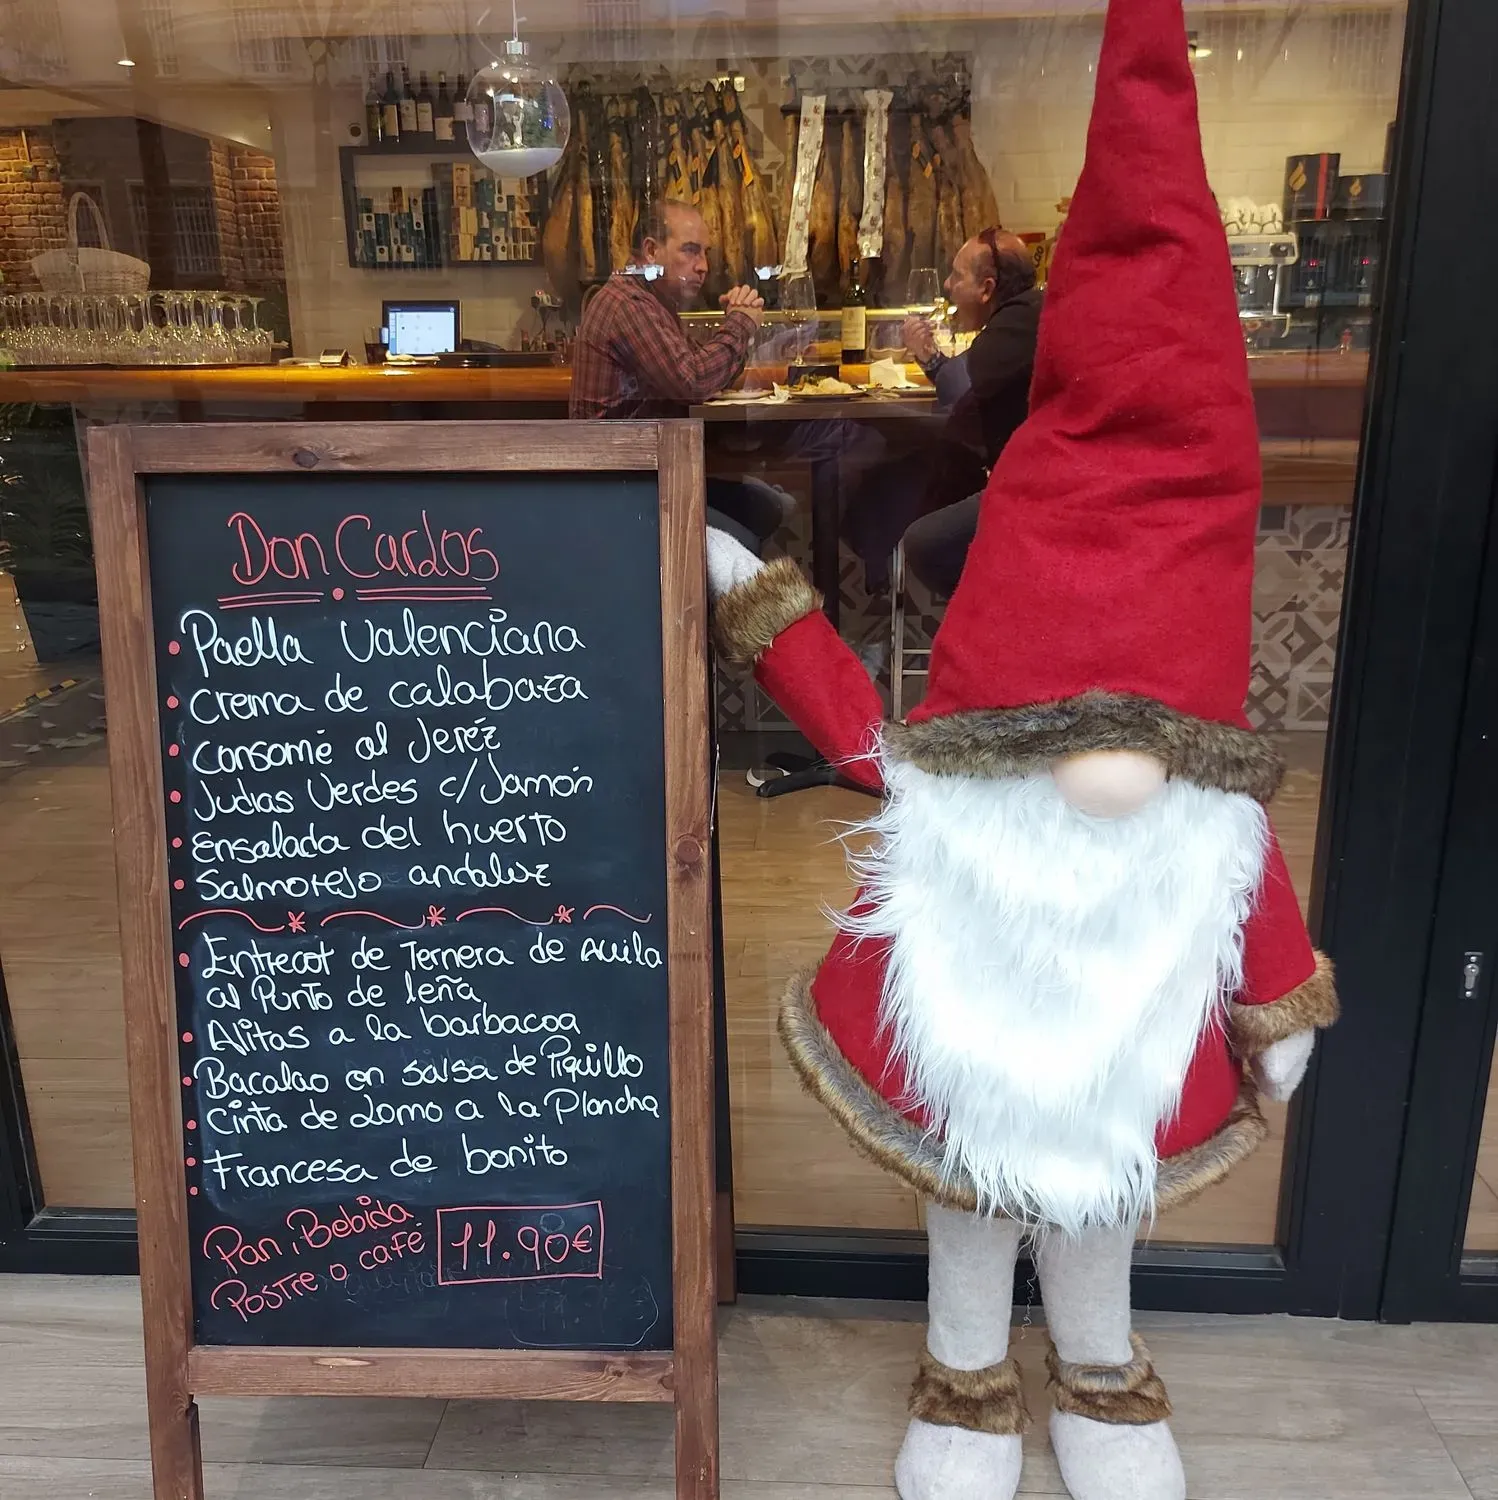 Don Carlos
Paella Valenciana
Crema de calabaza
Consomé al Jeréz
Judias Verdes c/Jamón
Ensalada del huerto
Salmorejo andaluz
Entrecot de Ternera de Avila
al Punto de leña
Alitas a la barbacoa
Bacalao en salsa de Piquillo
Cinta de Lomo a la Plancha
Francesa de bonito
Pan, Bebida
Postre o café
11.90€